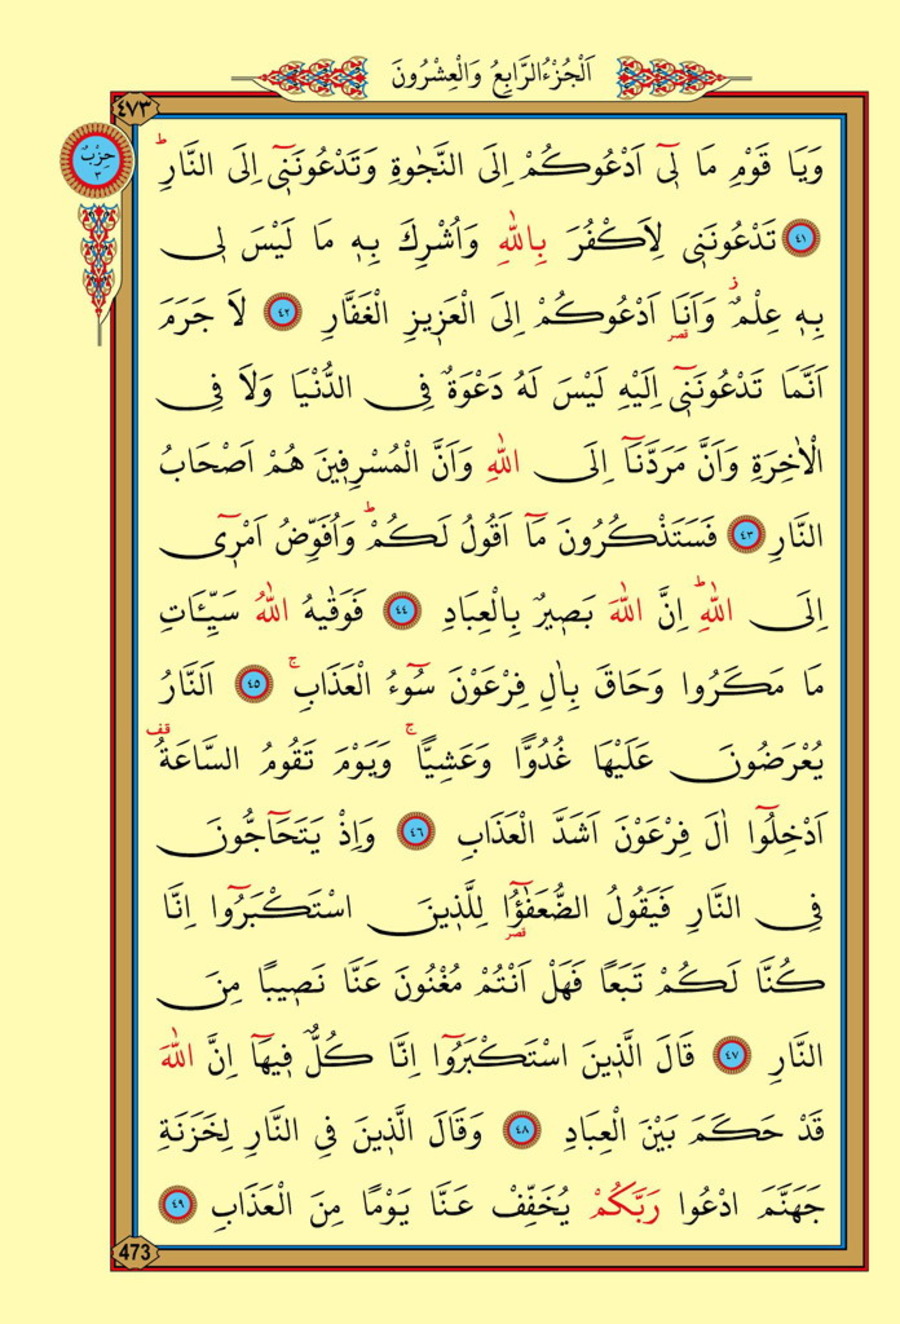 اَلْجُزْءُ الرَّابِعُ وَالْعِشْرُونَ
٤٧٣
حِزْبٌ
٣
وَيَا قَوْمِ مَا لٖٓى اَدْعُوكُمْ اِلَى النَّجٰوةِ وَتَدْعُونَنٖٓى اِلَى النَّارِؕ
﴿٤١﴾ تَدْعُونَنٖى لِاَكْفُرَ بِاللّٰهِ وَاُشْرِكَ بِهٖ مَا لَيْسَ لٖى
بِهٖ عِلْمٌؗ وَاَنَا۬ اَدْعُوكُمْ اِلَى الْعَزٖيزِ الْغَفَّارِ ﴿٤٢﴾ لَا جَرَمَ
قصر
اَنَّمَا تَدْعُونَنٖٓى اِلَيْهِ لَيْسَ لَهُ دَعْوَةٌ فِى الدُّنْيَا وَلَا فِى
الْاٰخِرَةِ وَاَنَّ مَرَدَّنَٓا اِلَى اللّٰهِ وَاَنَّ الْمُسْرِفٖينَ هُمْ اَصْحَابُ
النَّارِ ﴿٤٣﴾ فَسَتَذْكُرُونَ مَٓا اَقُولُ لَكُمْؕ وَاُفَوِّضُ اَمْرٖٓى
اِلَى اللّٰهِؕ اِنَّ اللّٰهَ بَصٖيرٌ بِالْعِبَادِ ﴿٤٤﴾ فَوَقٰيهُ اللّٰهُ سَيِّـَٔاتِ
مَا مَكَرُوا وَحَاقَ بِاٰلِ فِرْعَوْنَ سُٓوءُ الْعَذَابِۚ ﴿٤٥﴾ اَلنَّارُ
يُعْرَضُونَ عَلَيْهَا غُدُوًّا وَعَشِيًّاۚ وَيَوْمَ تَقُومُ السَّاعَةُ قف
اَدْخِلُٓوا اٰلَ فِرْعَوْنَ اَشَدَّ الْعَذَابِ ﴿٤٦﴾ وَاِذْ يَتَحَٓاجُّونَ
فِى النَّارِ فَيَقُولُ الضُّعَفٰٓؤُ۬ا لِلَّذٖينَ اسْتَكْبَرُٓوا اِنَّا
قصر
كُنَّا لَكُمْ تَبَعًا فَهَلْ اَنْتُمْ مُغْنُونَ عَنَّا نَصٖيبًا مِنَ
النَّارِ ﴿٤٧﴾ قَالَ الَّذٖينَ اسْتَكْبَرُٓوا اِنَّا كُلٌّ فٖيهَٓا اِنَّ اللّٰهَ
قَدْ حَكَمَ بَيْنَ الْعِبَادِ ﴿٤٨﴾ وَقَالَ الَّذٖينَ فِى النَّارِ لِخَزَنَةِ
جَهَنَّمَ ادْعُوا رَبَّكُمْ يُخَفِّفْ عَنَّا يَوْمًا مِنَ الْعَذَابِ ﴿٤٩﴾
473